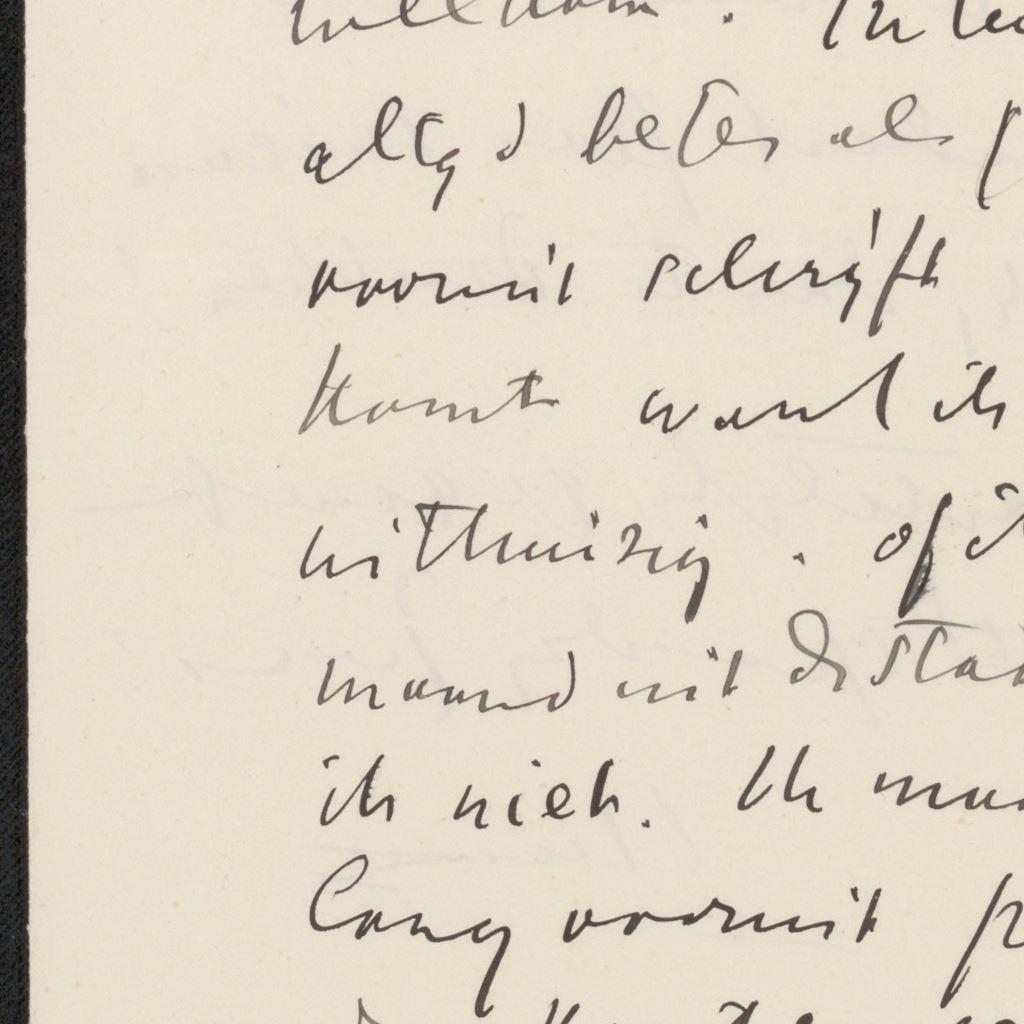 welkom. In
altijd beter als
vooruit schrijft
komt want ik
uithuizig. of i
maand uit de stad
ik niet. Ik maa
lang vooruit